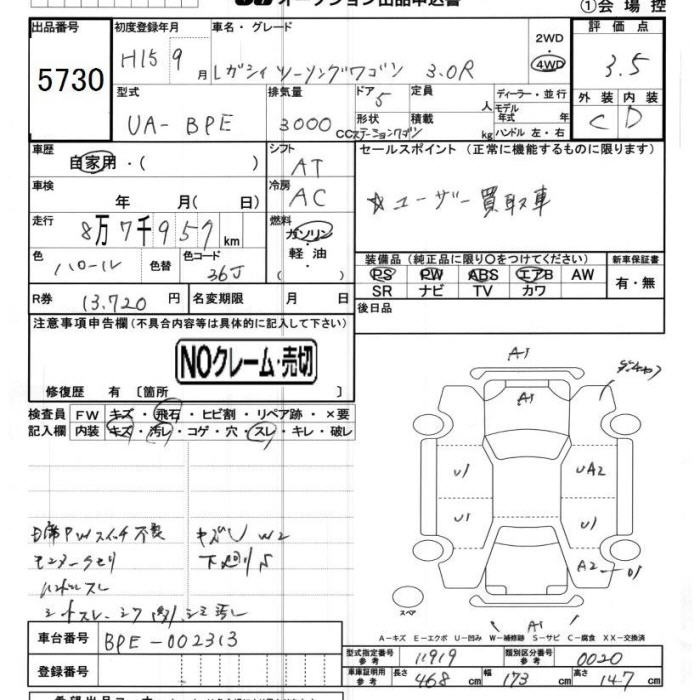 オークション出品申込書
①会場控
出品番号 初度登録年月 車名・グレード 2WD 評価点
5730 H15 9月 レガシィ ツーリングワゴン 3.0R 4WD 3.5
型式 排気量 ドア 5 定員 人 ディーラー・並行 外装 内装
UA-BPE 3000CC 形状 ステーションワゴン 積載 kg モデル年式 年 ハンドル 左・右 C D
車歴 自家用・( ) シフト AT セールスポイント (正常に機能するものに限ります)
車検 年 月( 日) 冷房 AC ☆ユーザー買取車
走行 8万7千957km 燃料 ガソリン
軽・油
( ・ )
色 パール 色替 色コード 36J
装備品 (純正品に限り○をつけてください) 新車保証書
PS PW ABS エアB AW 有・無
SR ナビ TV カワ
R券 13,720円 名変期限 月 日 後日品
注意事項申告欄 (不具合内容等は具体的に記入して下さい)
NOクレーム・売切
修復歴 有 〔箇所 〕
検査員 FW キズ・飛石・ヒビ割・リペア跡・×要
記入欄 内装 キズ・汚レ・コゲ・穴・スレ・キレ・破レ
A1
A1
U1 UA2
U1 U1
A2
A1
スペア
PWスイッチ不良 キズU W2
下廻りS
ハンドルスレ
シートスレ
A－キズ E－エクボ U－凹み W－補修跡 S－サビ C－腐食 XX－交換済
車台番号 BPE-002313
型式指定番号 参考 11919 類別区分番号 参考 0020
登録番号
車庫証明用 参考 長さ 468cm 幅 173cm 高さ 147cm